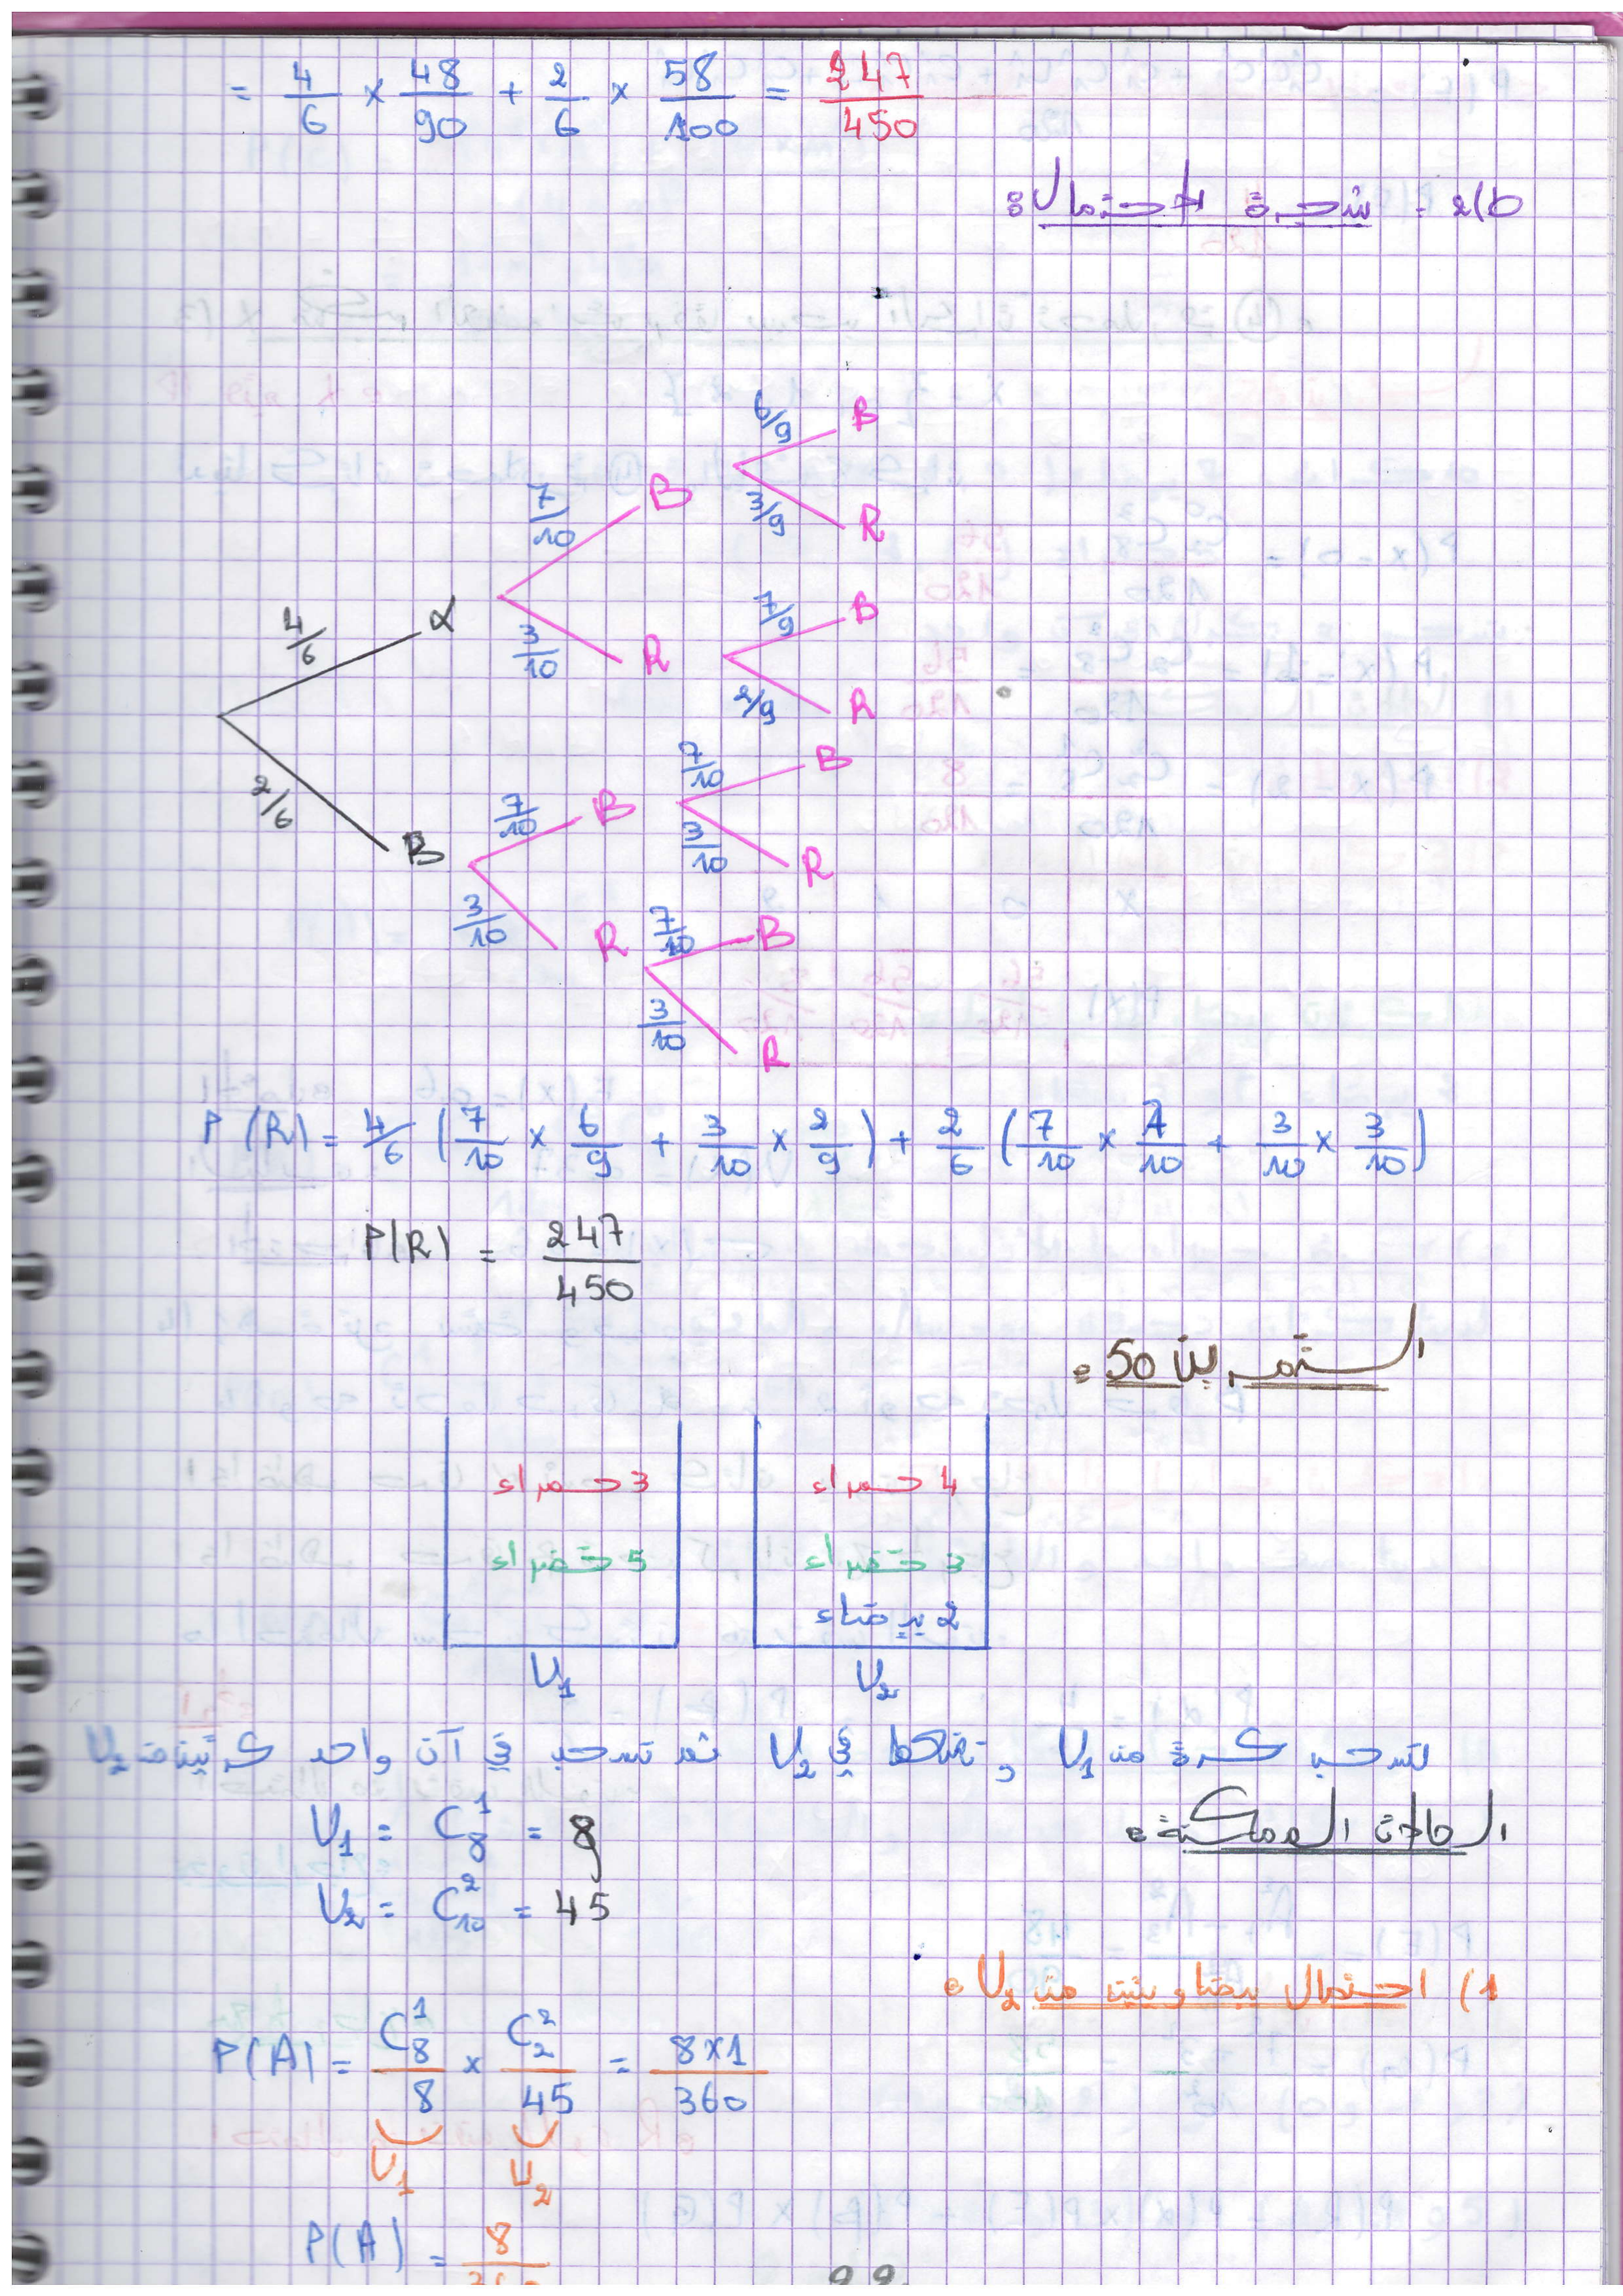 = 4/6 × 48/90 + 2/6 × 58/100 = 247/450
2(b - شجرة الاحتمالات:
6/9 B
7/10 B
3/9 R
4/6 α
7/9 B
3/10 R
2/9 R
7/10 B
2/6 B
7/10 B
3/10 R
3/10 R
7/10 B
3/10 R
P(R) = 4/6 (7/10 × 6/9 + 3/10 × 2/9) + 2/6 (7/10 × 7/10 + 3/10 × 3/10)
P(R) = 247/450
التمرين 50:
3 حمراء 4 حمراء
5 خضراء 3 خضراء
2 بيضاء
U₁ U₂
نسحب كرة من U₁ و نضعها في U₂ ثم نسحب في آن واحد كرتين من U₂
الحالات الممكنة:
U₁ = C₈¹ = 8
U₂ = C₁₀² = 45
1) احتمال بيضاويتين من U₂:
P(A) = C₈¹/8 × C₂²/45 = 8×1/360
U₁ U₂
P(A) = 8/360